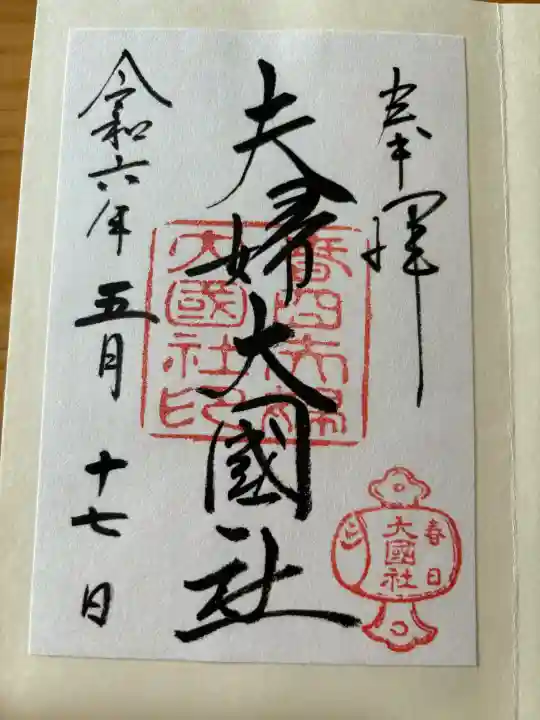 奉拝
夫婦大國社
令和六年 五月 十七日
春日夫婦
大國社印
春日
大國社